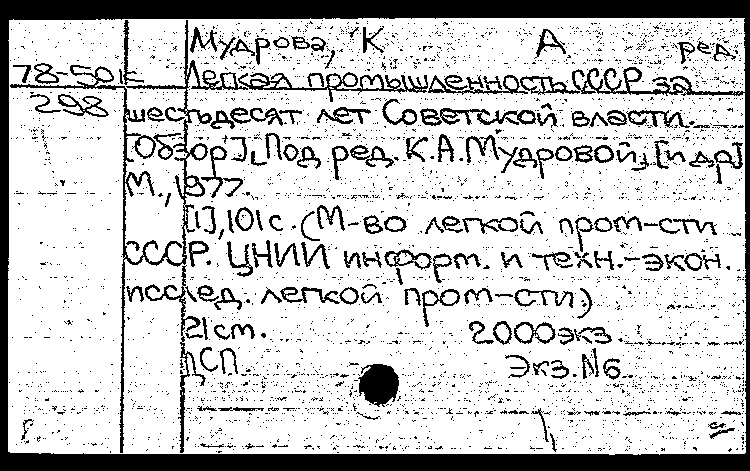 Мудрова, К А ред.
78-50 к Легкая промышленность СССР за
298 шестьдесят лет Советской власти.
[Обзор]. Под ред. К.А.Мудровой, [и др]
М., 1977.
[1], 101 с. (М-во легкой пром-сти
СССР. ЦНИИ информ. и техн.-экон.
исслед. легкой пром-сти)
21 см. 2000 экз.
ЦСП Экз. №